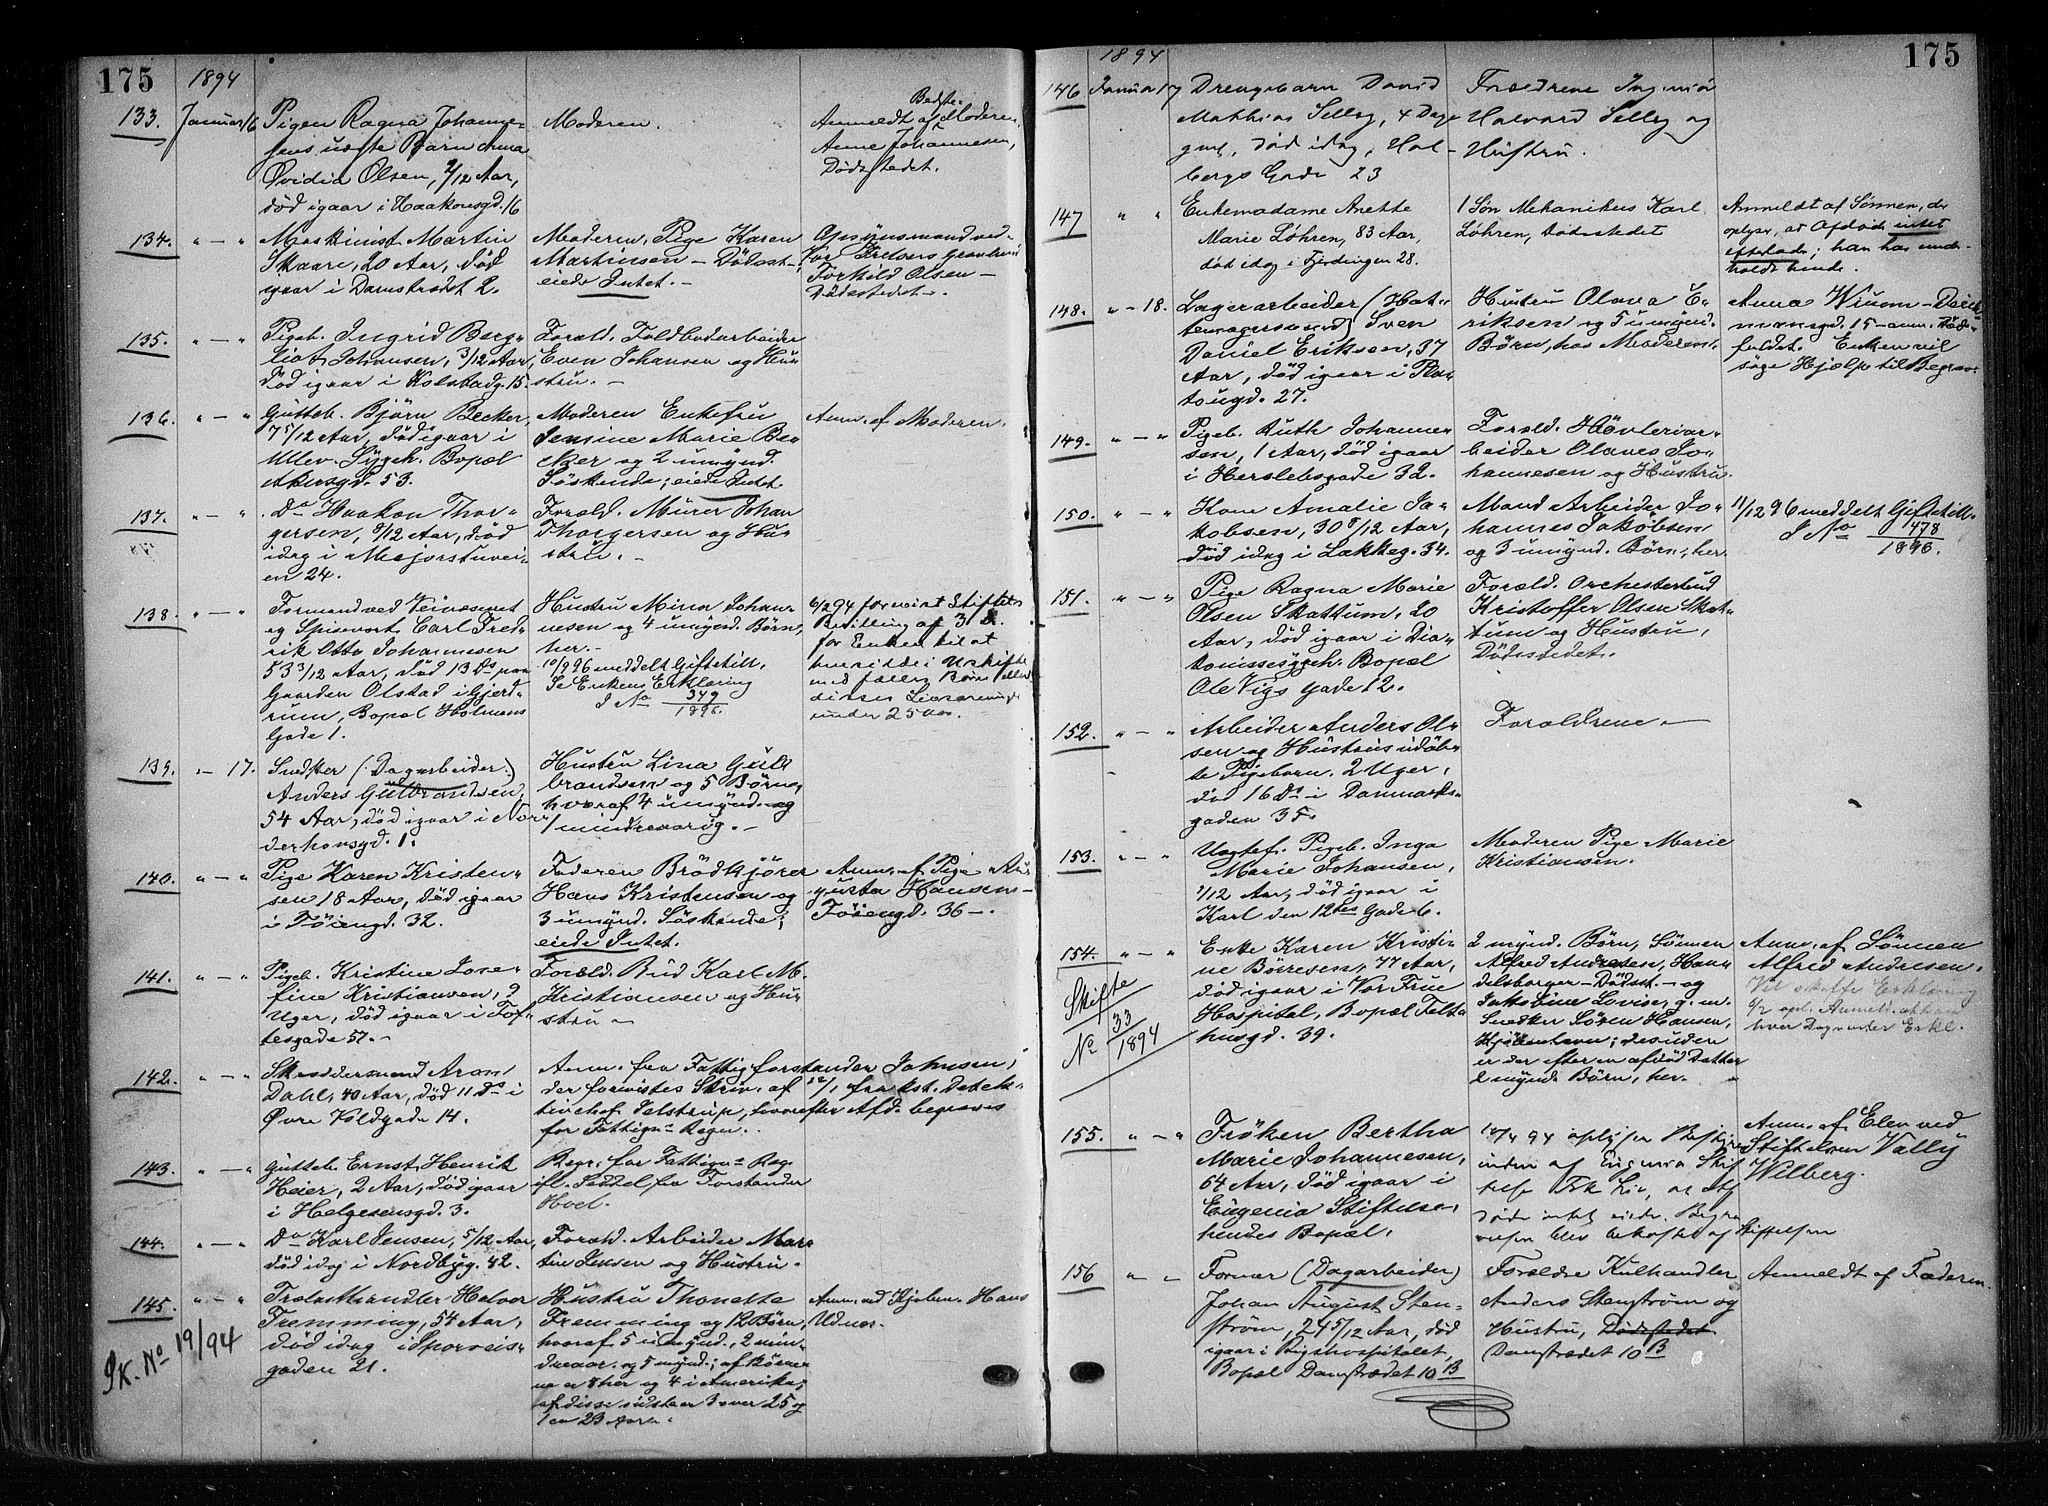 175
1894
133. Januar 16
Pigen Ragna Johanne-
sens uægte Barn Anna
Ovidia Olsen, 4/12 Aar,
død igaar i Haakonsgd. 16
Moderen.
Bedste-
Anmeldt af Moderen,
Anne Johannesen,
Dødsstedet.
134. " - "
Maskinist Martin
Skaare, 20 Aar, død
igaar i Damstrædet 2.
Moderen, Pige Karen
Martinsen - Dødsst.;
eiede Intet. -
Opsynsmand ved
Vor Frelsers Gravlund
Torkild Olsen -
Dødsstedet -.
135. " - "
Pigeb. Ingrid Berg-
liot Johansen, 3/12 Aar,
død igaar i Kolstadg. 15.
Foræld. Toldbodarbeider
Even Johansen og Hu-
stru. -
136. " - "
Gutteb. Bjørn Becker,
7 5/12 Aar, død igaar i
Ullev. Sygeh. Bopæl
Akersgd. 53.
Moderen Enkefru
Jensine Marie Be-
cker og 2 umynd.
Søskende; eiede Intet.
Anm. af Moderen.
137. " - "
Do Haakon Thor-
gersen, 8/12 Aar, død
idag i Majorstuvei-
en 24.
Foræld. Murer Johan
Thorgersen og Hu-
stru. -
138. " - "
Formand ved Veivæsenet
og Spisevert Carl Fred-
rik Otto Johannesen
53 3/12 Aar, død 13 Ds paa
Gaarden Olstad i Gjerd-
rum, Bopæl Holmens
Gade 1.
Hustru Mina Johan-
nesen og 4 umynd. Børn,
her. -
10/9 96 meddelt Giftetill.
Se Enkens Erklæring
J No 349/1896.
6/2 94 forevist Stiftets
Bevilling af 3 ds.
for Enken til at
hensidde i Uskifte
med fælles Børn eller
disses Livsarvinger
under 25 Aar.
139. - 17.
Snedker (Dagarbeider)
Anders Gulbrandsen,
54 Aar, død igaar i Nor-
derhovsgd. 1.
Hustru Lina Gul-
brandsen og 5 Børn,
hvoraf 4 umynd. og
1 mindreaarig. -
140. " - "
Pige Karen Kristen-
sen 18 Aar, død igaar
i Tøiengd. 32.
Faderen Brødkjører
Hans Kristensen og
3 umynd. Søskende;
eiede Intet.
Anm. af Pige Au-
gusta Hansen -
Tøiengd. 36 -.
141. " - "
Pigeb. Kristine Jose-
fine Kristiansen, 9
Uger, død igaar i Tof-
tesgade 57. -
Foræld. Bud Karl M.
Kristiansen og Hu-
stru -
142. " - "
Skræddersvend Aron
Dahl, 40 Aar, død 11 Ds i
Øvre Voldgade 14.
Anm. fra Fattigforstander Johnsen,
der forevistes Skriv. af 12/1 fra kst. Detek-
tivchef Jelstrup, hvorefter Afd. begraves
for Fattigvs Regn. -
143. " - "
Gutteb. Ernst Henrik
Heier, 2 Aar, død igaar
i Helgesensgd. 3.
Begr. for Fattigvs Reg.
ifl. Seddel fra Forstander
Hoel.
144. " - "
Do Karl Jensen, 5/12 Aar,
død idag i Nordbyg. 42.
Foræld. Arbeider Mar-
tin Jensen og Hustru.
145. " - "
Sk. No 19/94
Trælasthandler Halvor
Fremming, 54 Aar,
død idag i Sporveis-
gaden 21.
Hustru Thonette
Fremming og 12 Børn,
hvoraf 5 umynd., 2 min-
dreaar. og 5 mynd.; af Børne-
ne er 8 her og 4 i Amerika;
af disse sidste er 3 over 25 og
1 ca 23 Aar. -
Anm. ved Kjøbm. Hans
Udnes.
175
1894
146 Januar 17
Drengebarn David
Mathias Selby, 4 Dage
gml, død idag, Hol-
bergs Gade 23
Forældrene Ingeniør
Halvard Selby og
Hustru.
147 " "
Enkemadame Anette
Marie Løhren, 83 Aar,
død idag i Fjerdingen 28.
1 Søn Mekanikus Karl
Løhren, Dødsstedet
Anmeldt af Sønnen, der
oplyser, at Afdøde intet
efterlader; han har under-
holdt hende.
148. " - 18.
Lagerarbeider (Hat-
temagersvend) Sven
Daniel Eriksen, 37
Aar, død igaar i Ra-
tougd. 27.
Hustru Olava E-
riksen og 5 umynd.
Børn, hos Moderen.
Anna Wium -
gd. 15 - anm. Døds-
faldet. Enken vil
søge Hjælp til Begrav.
149. " - "
Pigeb. Ruth Johanne-
sen, 1 Aar, død igaar
i Herslebsgade 32.
Foræld. Høvleriar-
beider Olaves Jo-
hannesen og Hustru
150. " - "
Kone Amalie Ja-
kobsen, 30 8/12 Aar,
død idag i Lakkeg. 34.
Mand Arbeider Jo-
hannes Jakobsen
og 3 umynd. Børn, her.
11/12 96 meddelt Giftetill.
J No 478/1896.
151. " - "
Pige Ragna Marie
Olsen Skattum, 20
Aar, død igaar i Dia-
konissesygeh. Bopæl
Ole Vigs gade 12.
Foræld. Orchesterbud
Kristoffer Olsen Skat-
tum og Hustru,
Dødsstedet.
152. " - "
Arbeider Anders Ol-
sen og Hustrus udøb-
te Pigebarn, 2 Uger,
død 16 Ds i Danmarks-
gaden 35.
Forældrene. -
153. " - "
Uægtef. Pigeb. Inga
Marie Johansen,
1/12 Aar, død igaar i
Karl den 12tes Gade 6.
Moderen Pige Marie
Kristiansen.
154. " - "
Skifte
No 33/1894
Enke Karen Kristi-
ne Børresen, 77 Aar,
død igaar i Vor Frue
Hospital, Bopæl Telt-
husgd. 39.
2 mynd. Børn, Sønnen
Alfred Andresen, Han-
delsborger - Dødsst. - og
Jakobine Lovise, g. m.
Snedker Søren Hansen,
Kjøbenhavn; desuden
er der efter en afdød Datter
2 mynd. Børn, her. -
Anm. af Sønnen
Alfred Andresen.
Vil skaffe Erklæring
6/2 opl. Anmeld. at han
hver Dag venter Erkl.
155. " - "
Frøken Bertha
Marie Johannesen,
64 Aar, død igaar i
Eugenia Stiftelse,
hendes Bopæl.
10/4 94 oplyser Bestyrer-
inden af Eugenia Stif-
telse Frk Lie, at Af-
døde intet eiede. Begra-
velsen blev bekostet af Stiftelsen
Anm. af Elev ved
Stiftelsen Vally
Wilberg.
156 " "
Former (Dagarbeider)
Johan August Sten-
strøm, 24 5/12 Aar, død
igaar i Rigshospitalet,
Bopæl Damstrædet 10 B
Forældre Kulhandler
Anders Stenstrøm og
Hustru, Dødsstedet
Damstrædet 10 B
Anmeldt af Faderen.